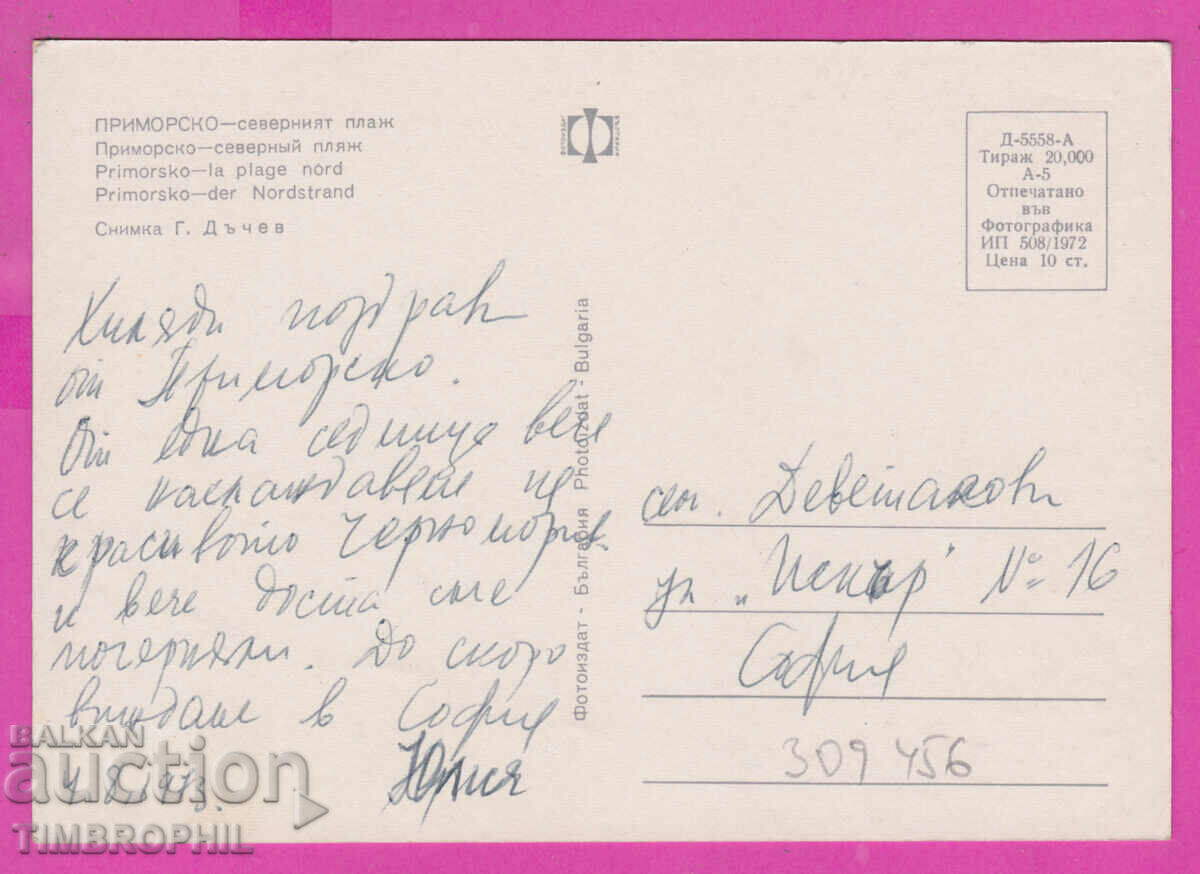 ПРИМОРСКО—северният плаж
Приморско—северный пляж
Primorsko—la plage nord
Primorsko—der Nordstrand
Снимка Г. Дъчев
ФОТОИЗДАТ
БЪЛГАРИЯ
Д-5558-А
Тираж 20,000
А-5
Отпечатано
във
Фотографика
ИП 508/1972
Цена 10 ст.
Хиляди поздрави
от Приморско.
От една седмица вече
се наслаждаваме на
красивото Черноморие
и вече доста сме
почерняли. До скоро
виждане в София
Юлия
Фотоиздат - България Photoizdat - Bulgaria
сем. Деветакови
ул „Искър" № 16
София
309456
BALKAN
auction
TIMBROPHIL